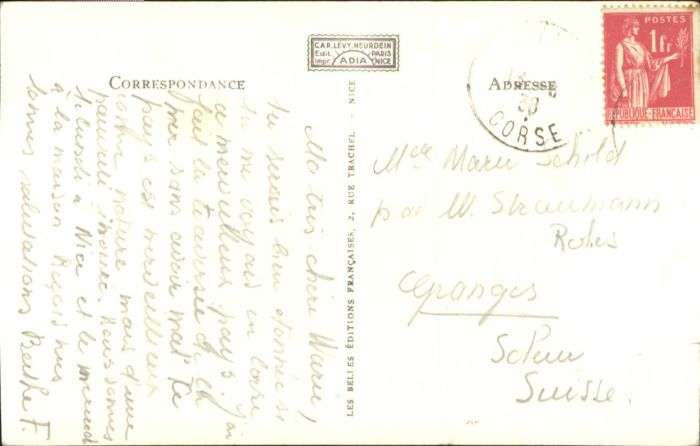 CORRESPONDANCE
C.A.P. LEVY NEURDEIN
Edit. PARIS
Impr. ADIA NICE
ADRESSE
POSTES
1fr
REPUBLIQUE FRANÇAISE
CORSE
LES BELLES ÉDITIONS FRANÇAISES, 2, RUE TRACHEL - NICE
Ma très chère Marie,
tu serais bien étonnée si
tu me voyais en Corse
ce merveilleux pays. J'ai
fait la traversée
mer sans avoir mal Ce
pays est merveilleux
comme nature mais d'une
Nous sommes
lundi à Nice et le mercredi
à la maison Reçois mes
bonnes salutations Berthe F.
Mlle Marie Schild
par W. Straumann
Granges
Soleure
Suisse.